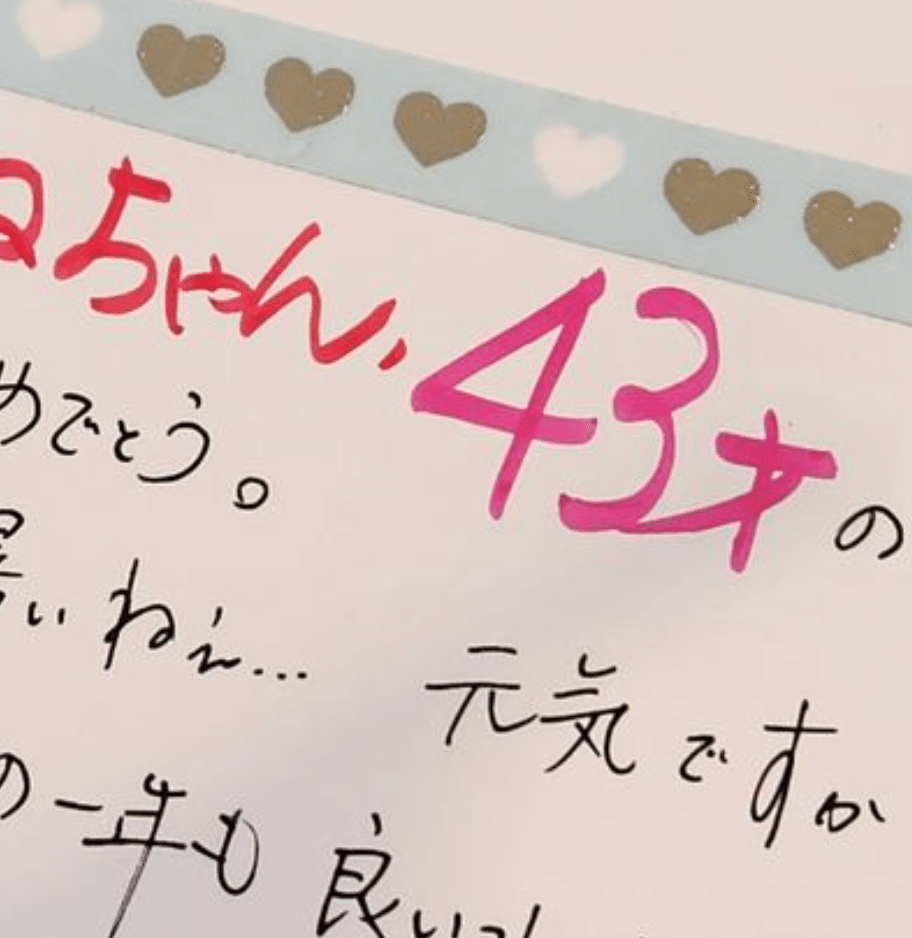 ちゃん、43才の
めでとう。
暑いねぇ… 元気ですか
の一年も 良い